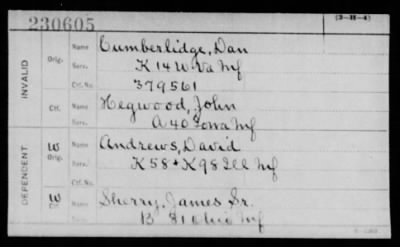 230605
(3-H-4)
INVALID
Orig.
Name Cumberlidge, Dan
Serv. K 14 W. Va Inf
Ctf. No. 379561
Ctf.
Name Hegwood, John
Serv. A 40 Iowa Inf
DEPENDENT
W
Orig.
Name Andrews, David
Serv. K 58 + K 98 Ill Inf
W
Name Sherry, James Sr.
B 81 Ohio Inf